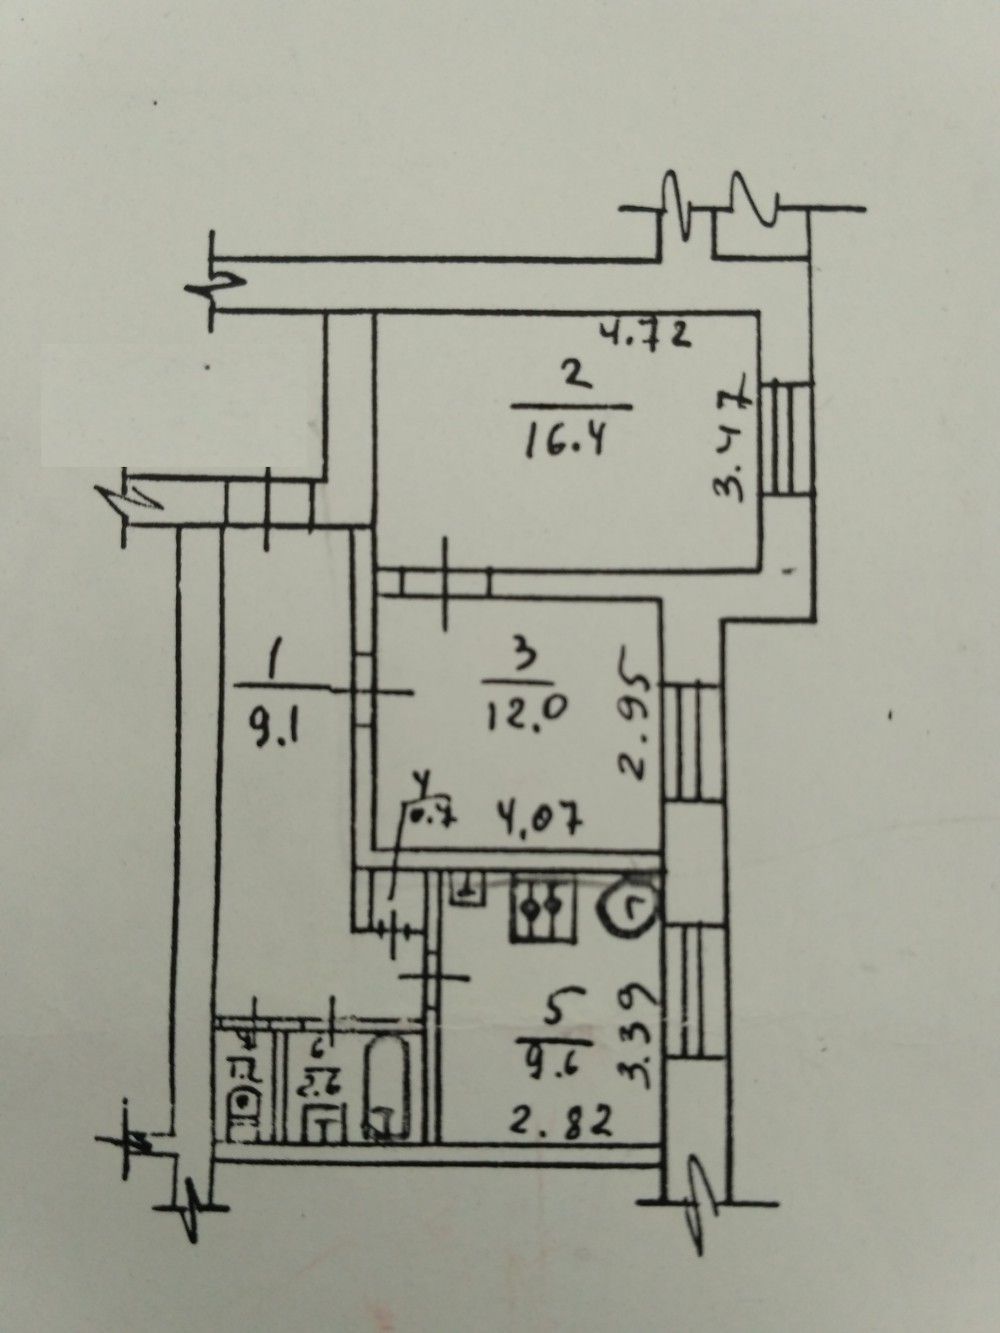 4.72
2
16.4
3.47
1
9.1
3
12.0
2.95
4.07
4
0.7
5
9.6
3.39
2.82
6
2.6